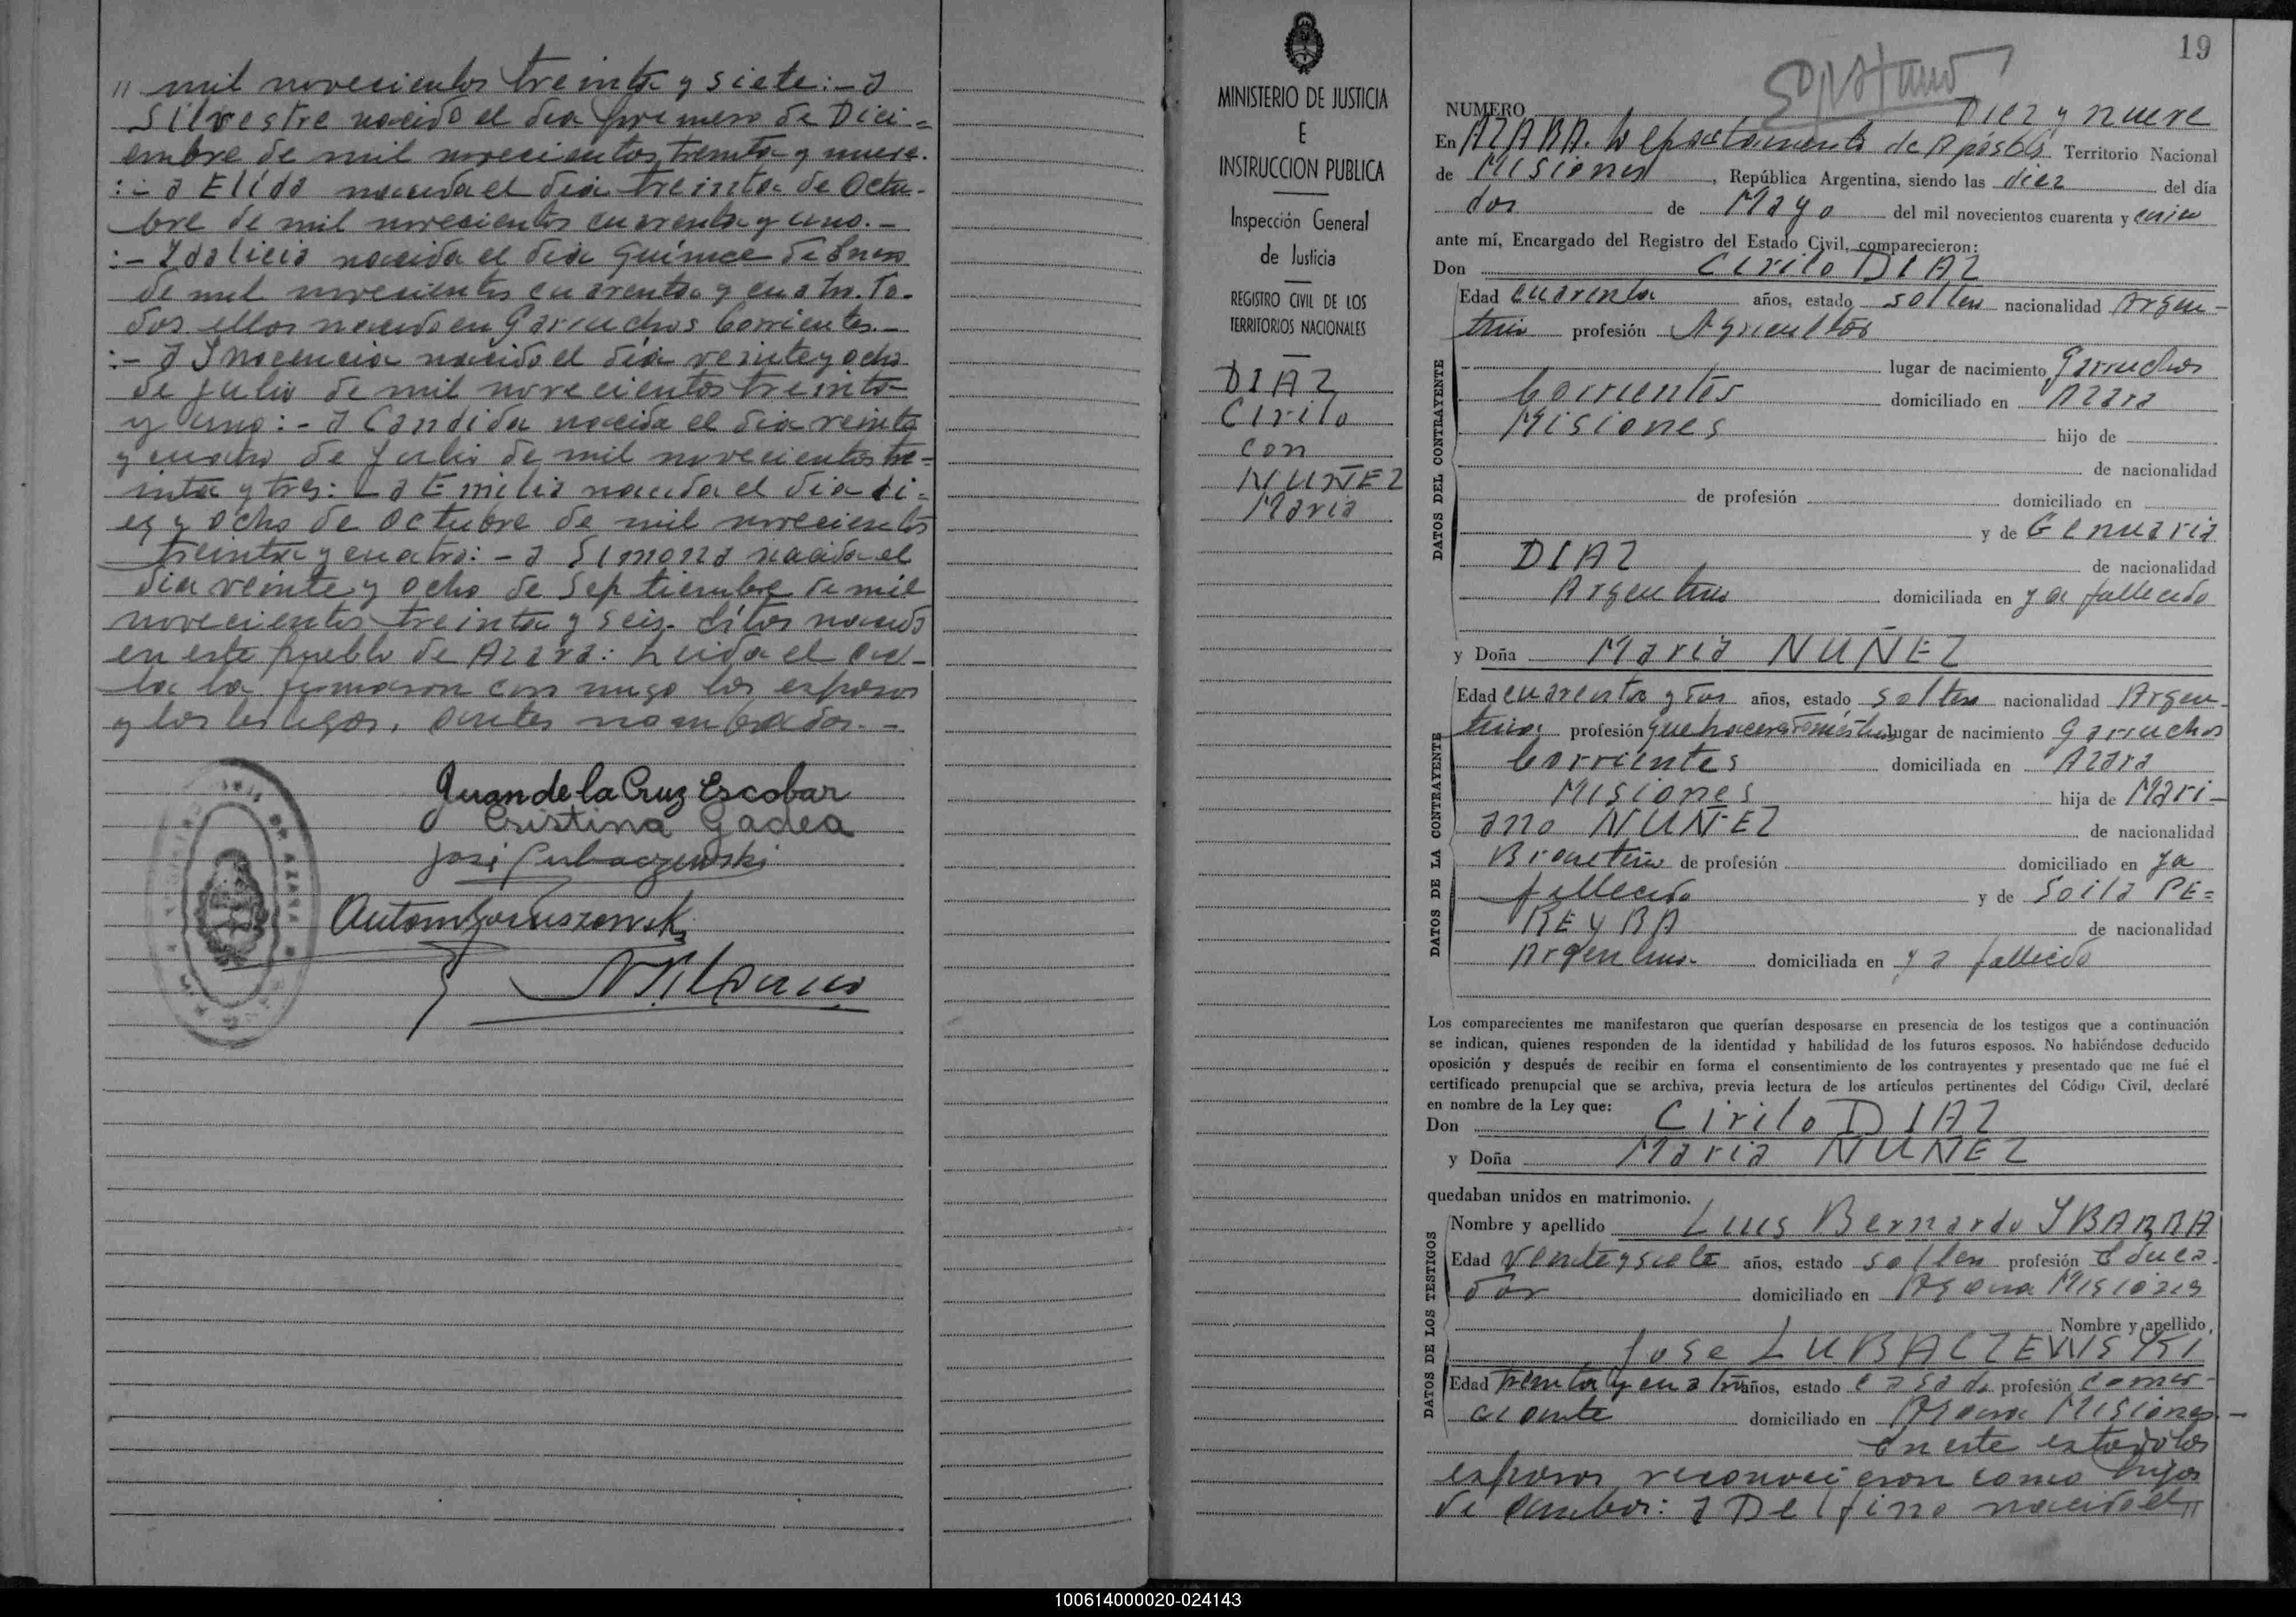 " mil novecientos treinta y siete: - a
Silvestre nacido el dia primero de Dici=
embre de mil novecientos treinta y nueve.
: - a Elida nacida el dia treinta de Octu-
bre de mil novecientos cuarenta y uno. -
: - Idalicia nacida el dia quince de Enero
de mil novecientos cuarenta y cuatro. To-
dos ellos nacidos en Garruchos Corrientes. -
: - a Inocencia nacida el día veinte y ocho
de Julio de mil novecientos treinta
y uno: - a Candida nacida el dia veinte
y cuatro de Julio de mil novecientos tre=
inta y tres: - a Emilia nacida el dia di=
ez y ocho de Octubre de mil novecientos
treinta y cuatro: - a Simona nacida el
dia veinte y ocho de Septiembre de mil
novecientos treinta y seis. Estos nacidos
en este pueblo de Azara: Leida el ac-
ta la firmaron con migo los esposos
y los testigos, antes nombrados. -
Juan de la Cruz Escobar
Cristina Gadea
José Lubaczewski
DE AZARA
MINISTERIO DE JUSTICIA
E
INSTRUCCION PUBLICA
Inspección General
de Justicia
REGISTRO CIVIL DE LOS
TERRITORIOS NACIONALES
DIAZ
Cirilo
con
NUÑEZ
Maria
19
NUMERO Diez y nueve
En AZARA. Departamento de Apóstoles Territorio Nacional
de Misiones, República Argentina, siendo las diez del día
dos de Mayo del mil novecientos cuarenta y cinco
ante mí, Encargado del Registro del Estado Civil, comparecieron:
Don Cirilo DIAZ
DATOS DEL CONTRAYENTE
Edad cuarenta años, estado soltero nacionalidad Argen-
tino profesión Agricultor
lugar de nacimiento Garruchos
Corrientes domiciliado en Azara
Misiones hijo de
de nacionalidad
de profesión domiciliado en
y de Genuaria
DIAZ de nacionalidad
Argentina domiciliada en ya fallecida
y Doña Maria NUÑEZ
DATOS DE LA CONTRAYENTE
Edad cuarenta y dos años, estado soltera nacionalidad Argen-
tina profesión que haceres domésticos lugar de nacimiento Garruchos
Corrientes domiciliada en Azara
Misiones hija de Mari-
ano NUÑEZ de nacionalidad
de profesión domiciliado en ya
fallecido y de Soila PE=
REYRA de nacionalidad
Argentina. domiciliada en ya fallecida
Los comparecientes me manifestaron que querían desposarse en presencia de los testigos que a continuación
se indican, quienes responden de la identidad y habilidad de los futuros esposos. No habiéndose deducido
oposición y después de recibir en forma el consentimiento de los contrayentes y presentado que me fué el
certificado prenupcial que se archiva, previa lectura de los artículos pertinentes del Código Civil, declaré
en nombre de la Ley que:
Don Cirilo DIAZ
y Doña Maria NUÑEZ
quedaban unidos en matrimonio.
DATOS DE LOS TESTIGOS
Nombre y apellido Luis Bernardo YBARRA
Edad veinte y siete años, estado soltero profesión Educa-
dor domiciliado en Azara Misiones
Nombre y apellido
Jose LUBACZEWSKI
Edad treinta y cuatro años, estado casado profesión comer-
ciante domiciliado en Azara Misiones. -
En este estado los
esposos reconocieron como hijos
de ambos: a Delfino nacido el "
100614000020-024143